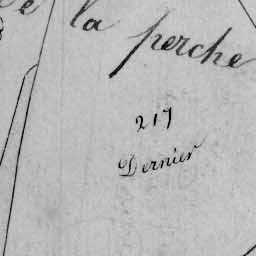 la perche
217
Dernier